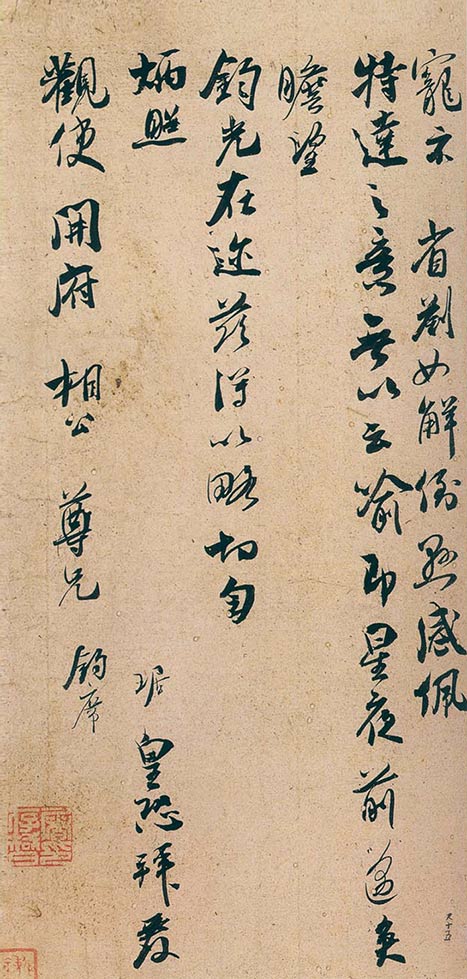 寵示 省劄如解倒懸感佩
特達之意無以云喻即星夜前邁矣
瞻望
鈞光在邇茲得以略切匄
炳照 琚皇恐拜覆
觀使 開府 相公 尊兄 鈞席